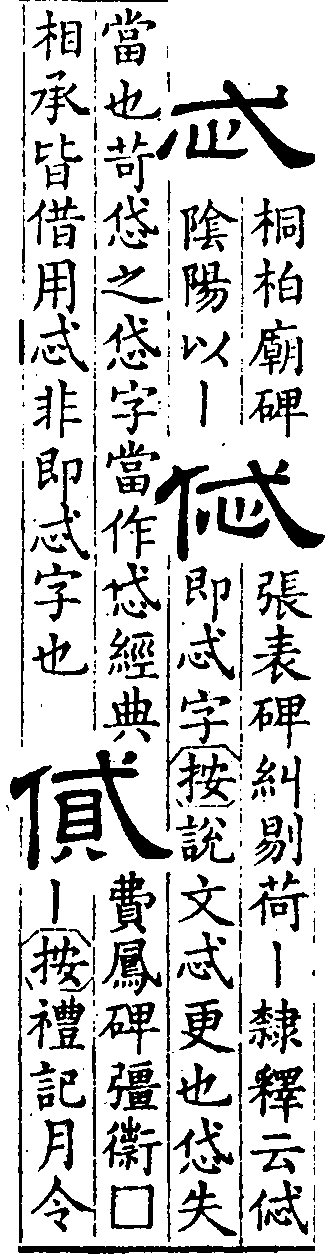 忒
桐柏廟碑
陰陽以丨
㤂
張表碑糾剔荷丨隸釋云㤂
即忒字按說文忒更也㤂失
當也苛㤂之㤂字當作㤂經典
相承皆借用忒非即忒字也
貸
費鳳碑彊衛□
丨按禮記月令